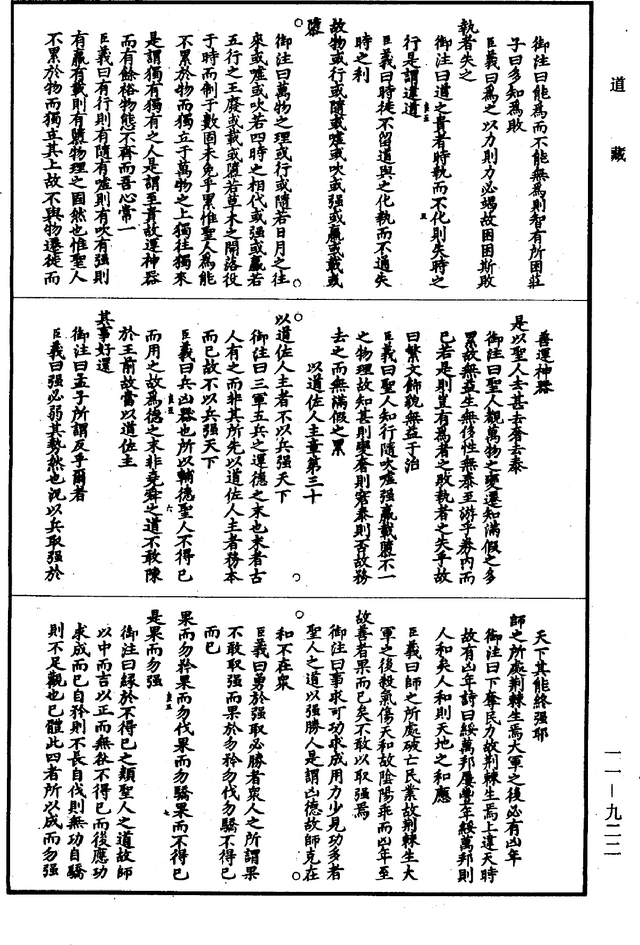 道藏
御注曰能為而不能無為則智有所困莊
子曰多知為敗
臣義曰為之以力則力必竭故困困斯敗
執者失之
御注曰道之貴者時執而不化則失時之
行是謂違道
臣義曰時徙不留道與之化執而不通失
時之利
故物或行或隨或噓或吹或强或羸或載或
隳
御注曰萬物之理或行或隨若日月之往
來或噓或吹若四時之相代或强或羸若
五行之王廢或載或隳若草木之開落役
于時而制于數固未免乎累惟聖人為能
不累於物而獨立于萬物之上獨往獨來
是謂獨有獨有之人是謂至貴故運神器
而有餘裕物態不齊而吾心常一
臣義曰有行則有隨有噓則有吹有强則
有羸有載則有隳物理之固然也惟聖人
不累於物而獨立其上故不與物遷徙而
善運神器
是以聖人去甚去奢去泰
御注曰聖人觀萬物之變遷知滿假之多
累故無益生無侈性無泰至游乎券內而
已若是則豈有為者之敗執者之失乎故
曰繁文飾貌無益于治
臣義曰聖人知行隨吹噓强羸載隳不一
之物理故知甚則變奢則窮泰則否故務
去之而無滿假之累
以道佐人主章第三十
以道佐人主者不以兵强天下
御注曰三軍五兵之運德之末也末者古
人有之而非其所先以道佐人主者務本
而已故不以兵强天下
臣義曰兵凶器也所以輔德聖人不得已
而用之故為德之末非堯舜之道不敢陳
於王前故當以道佐主
其事好還
御注曰孟子所謂反乎爾者
臣義曰强必弱其勢然也況以兵取强於
天下其能終强耶
師之所處荊棘生焉大軍之後必有凶年
御注曰下奪民力故荊棘生焉上違天時
故有凶年詩曰綏萬邦屢豐年綏萬邦則
人和矣人和則天地之和應
臣義曰師之所處破亡民業故荊棘生大
軍之後殺氣傷天和故陰陽乖而凶年至
故善者果而已矣不敢以取强焉
御注曰事求可功求成用力少見功多者
聖人之道以强勝人是謂凶德故師克在
和不在衆
臣義曰勇於强取必勝者衆人之所謂果
不敢取强而果於勿矜勿伐勿驕不得已
而已
果而勿矜果而勿伐果而勿驕果而不得已
是果而勿强
御注曰緣於不得已之類聖人之道故師
以中而吉以正而無敵不得已而後應功
求成而已自矜則不長自伐則無功自驕
則不足觀也已體此四者所以成而勿强
一一—九二二